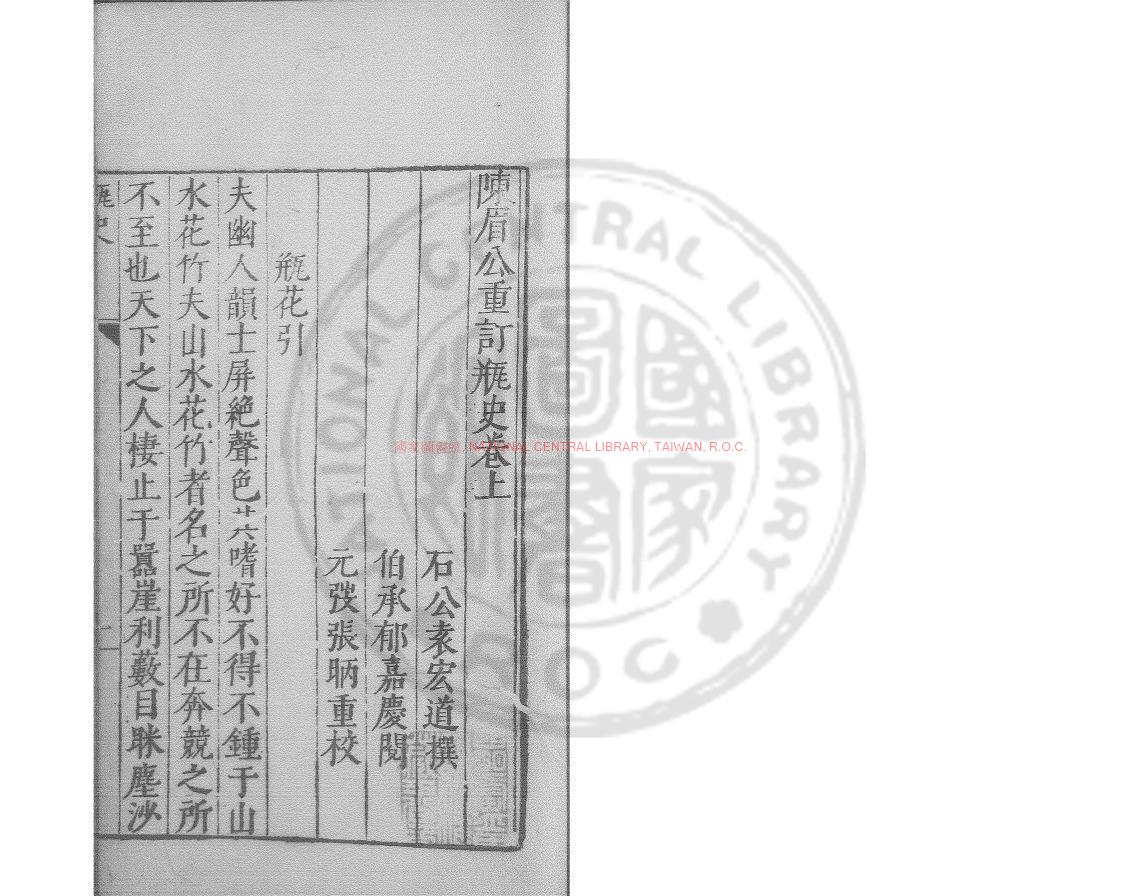 陳眉公重訂瓶史卷上
石公袁宏道撰
伯承郁嘉慶閱
元弢張昞重校
瓶花引
夫幽人韻士屏絶聲色其嗜好不得不鍾于山
水花竹夫山水花竹者名之所不在奔競之所
不至也天下之人棲止于囂崖利藪目眯塵沙
瓶史
一
國家圖書館, NATIONAL CENTRAL LIBRARY, TAIWAN, R.O.C.
NATIONAL CENTRAL LIBRARY
R.O.C.